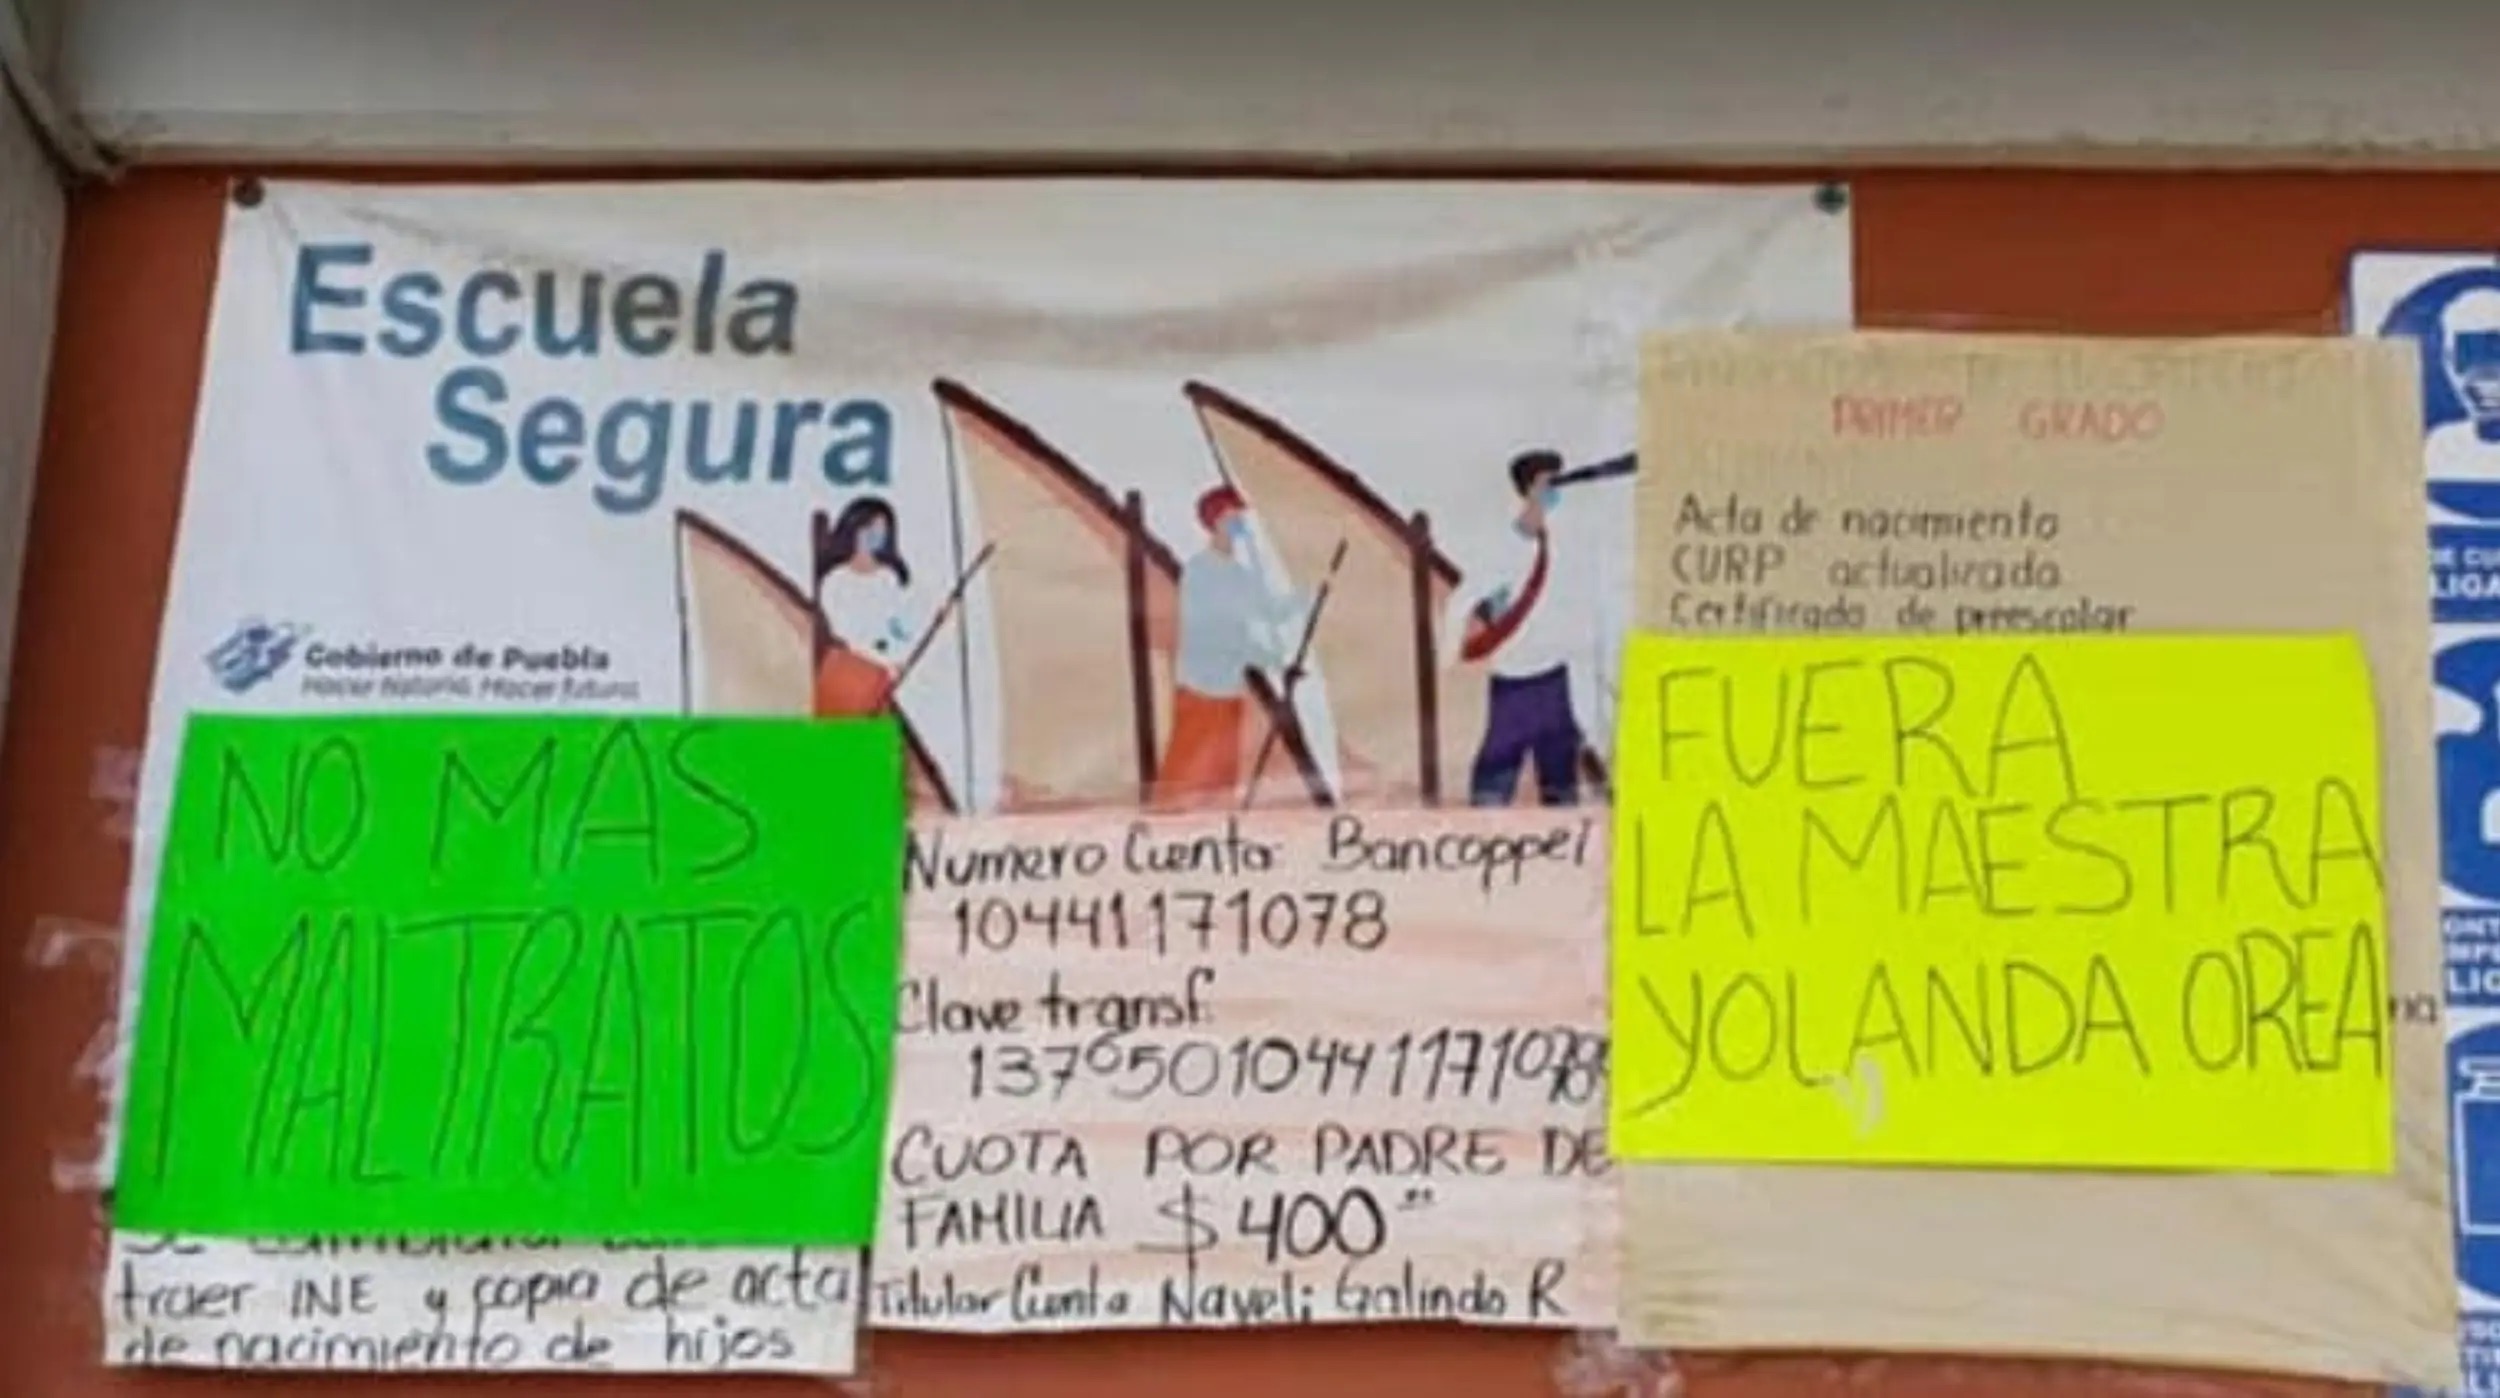 Escuela
Segura
Gobierno de Puebla
Hacer historia. Hacer futuro.
NO MAS
MALTRATOS
traer INE y copia de acta
de nacimiento de hijos
Numero Cuenta Bancoppel
10441171078
Clave transf.
CUOTA POR PADRE DE
FAMILIA $400
Titular Cuenta Nayeli Galindo R
PRIMER GRADO
Acta de nacimiento
CURP actualizada
Certificado de preescolar
FUERA
LA MAESTRA
YOLANDA OREA